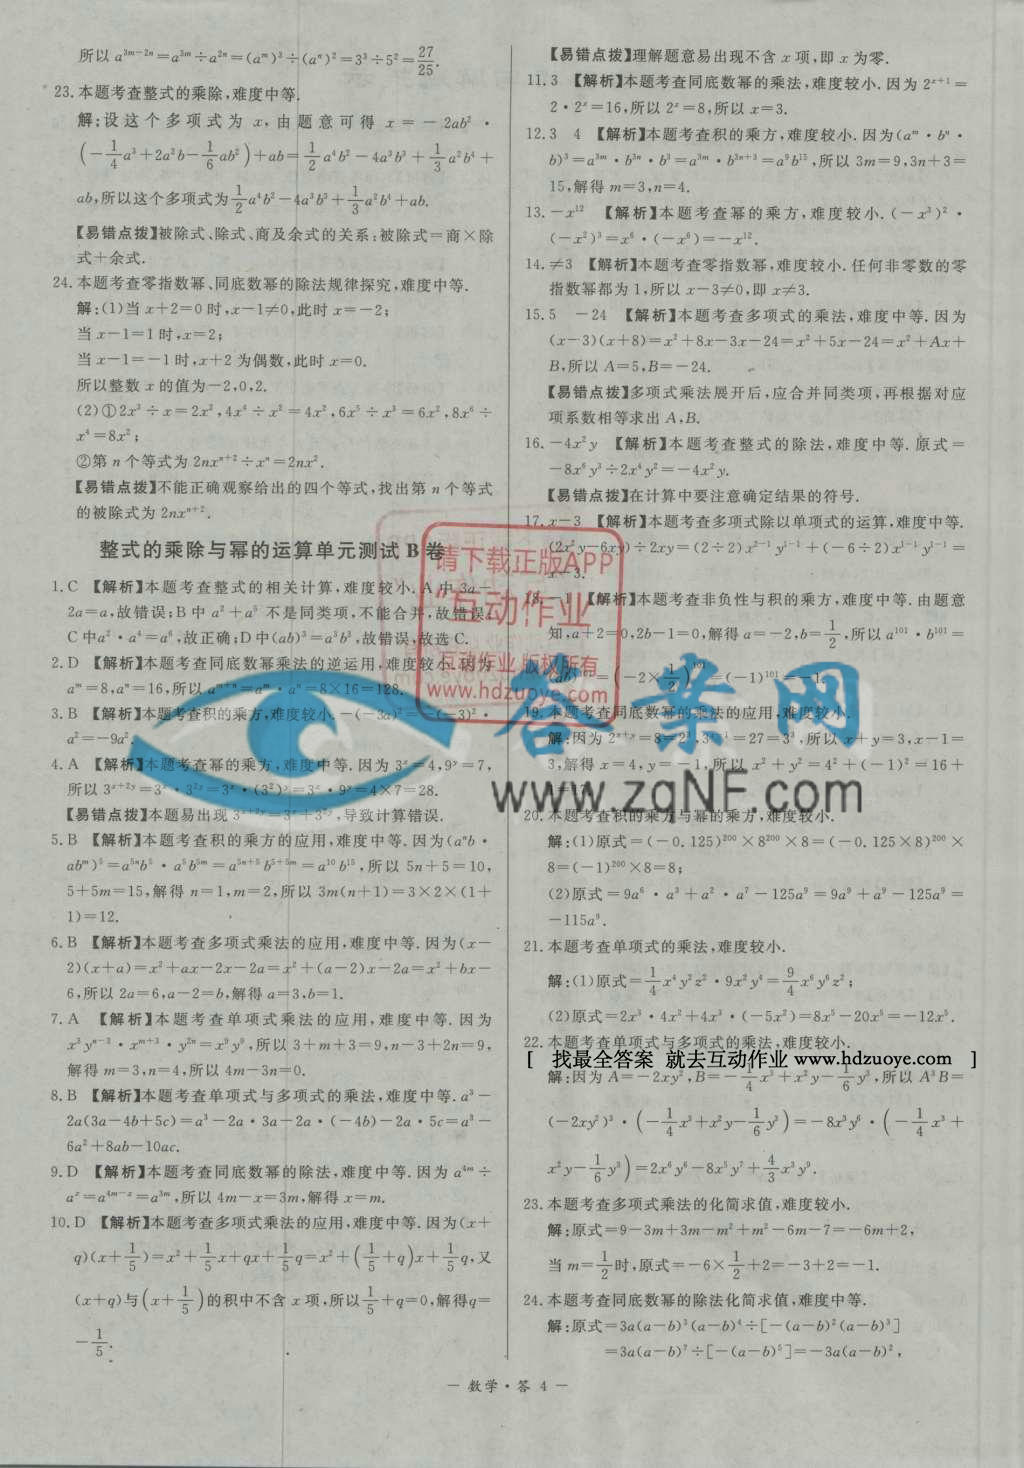 所以 a³ᵐ⁻²ⁿ=a³ᵐ÷a²ⁿ=(aᵐ)³÷(aⁿ)²=3³÷5²=27/25.
23.本题考查整式的乘除,难度中等.
解:设这个多项式为 x,由题意可得 x=-2ab²·
(-1/4a³+2a²b-1/6ab²)+ab=1/2a⁴b²-4a³b³+1/3a²b⁴+
ab,所以这个多项式为1/2a⁴b²-4a³b³+1/3a²b⁴+ab.
【易错点拨】被除式、除式、商及余式的关系:被除式=商×除
式+余式.
24.本题考查零指数幂、同底数幂的除法规律探究,难度中等.
解:(1)当 x+2=0 时,x-1≠0,此时 x=-2;
当 x-1=1 时,x=2;
当 x-1=-1 时,x+2 为偶数,此时 x=0.
所以整数 x 的值为-2,0,2.
(2)①2x³÷x=2x²,4x⁴÷x²=4x²,6x⁵÷x³=6x²,8x⁶÷
x⁴=8x²;
②第 n 个等式为 2nxⁿ⁺²÷xⁿ=2nx².
【易错点拨】不能正确观察给出的四个等式,找出第 n 个等式
的被除式为 2nxⁿ⁺².
整式的乘除与幂的运算单元测试 B 卷
1.C 【解析】本题考查整式的相关计算,难度较小.A 中 3a-
2a=a,故错误;B 中 a²+a⁵ 不是同类项,不能合并,故错误;
C 中a²·a⁴=a⁶,故正确;D 中(ab)³=a³b³,故错误,故选 C.
2.D 【解析】本题考查同底数幂乘法的逆运用,难度较小.因为
aᵐ=8,aⁿ=16,所以 aᵐ⁺ⁿ=aᵐ·aⁿ=8×16=128.
3.B 【解析】本题考查积的乘方,难度较小.-(-3a)²=-(-3)²·
a²=-9a².
4.A 【解析】本题考查幂的乘方,难度中等.因为 3ˣ=4,9ʸ=7,
所以 3ˣ⁺²ʸ=3ˣ·3²ʸ=3ˣ·(3²)ʸ=3ˣ·9ʸ=4×7=28.
【易错点拨】本题易出现 3ˣ⁺²ʸ=3ˣ+3²ʸ,导致计算错误.
5.B 【解析】本题考查积的乘方的应用,难度中等.因为(aⁿb·
abᵐ)⁵=a⁵ⁿb⁵·a⁵b⁵ᵐ=a⁵ⁿ⁺⁵b⁵⁺⁵ᵐ=a¹⁰b¹⁵,所以 5n+5=10,
5+5m=15,解得 n=1,m=2,所以 3m(n+1)=3×2×(1+
1)=12.
6.B 【解析】本题考查多项式乘法的应用,难度中等.因为(x-
2)(x+a)=x²+ax-2x-2a=x²+(a-2)x-2a=x²+bx-
6,所以 2a=6,a-2=b,解得 a=3,b=1.
7.A 【解析】本题考查单项式乘法的应用,难度中等.因为
x³yⁿ⁻³·xᵐ⁺³·y²ⁿ=x⁹y⁹,所以 3+m+3=9,n-3+2n=9,
解得 m=3,n=4,所以 4m-3n=0.
8.B 【解析】本题考查单项式与多项式的乘法,难度中等.a³-
2a(3a-4b+5c)=a³-2a·3a-2a·(-4b)-2a·5c=a³-
6a²+8ab-10ac.
9.D 【解析】本题考查同底数幂的除法,难度中等.因为 a⁴ᵐ÷
aˣ=a⁴ᵐ⁻ˣ=a³ᵐ,所以 4m-x=3m,解得 x=m.
10.D 【解析】本题考查多项式乘法的应用,难度中等.因为(x+
q)(x+1/5)=x²+1/5x+qx+1/5q=x²+(1/5+q)x+1/5q,又
(x+q)与(x+1/5)的积中不含 x 项,所以1/5+q=0,解得q=
-1/5.
【易错点拨】理解题意易出现不含 x 项,即 x 为零.
11.3 【解析】本题考查同底数幂的乘法,难度较小.因为 2ˣ⁺¹=
2·2ˣ=16,所以 2ˣ=8,所以 x=3.
12.3 4 【解析】本题考查积的乘方,难度较小.因为(aᵐ·bⁿ·
b)³=a³ᵐ·b³ⁿ·b³=a³ᵐ·b³ⁿ⁺³=a⁹b¹⁵,所以 3m=9,3n+3=
15,解得 m=3,n=4.
13.-x¹² 【解析】本题考查幂的乘方,难度较小.(-x³)²·
(-x²)³=x⁶·(-x⁶)=-x¹².
14.≠3 【解析】本题考查零指数幂,难度较小.任何非零数的零
指数幂都为 1,所以 x-3≠0,即 x≠3.
15.5 -24 【解析】本题考查多项式的乘法,难度中等.因为
(x-3)(x+8)=x²+8x-3x-24=x²+5x-24=x²+Ax+
B,所以 A=5,B=-24.
【易错点拨】多项式乘法展开后,应合并同类项,再根据对应
项系数相等求出 A,B.
16.-4x²y 【解析】本题考查整式的除法,难度中等.原式=
-8x⁶y³÷2x⁴y²=-4x²y.
【易错点拨】在计算中要注意确定结果的符号.
17.x-3 【解析】本题考查多项式除以单项式的运算,难度中等.
(2x²y-6xy)÷2xy=(2÷2)x²⁻¹y¹⁻¹+(-6÷2)x¹⁻¹y¹⁻¹=
x-3.
18.-1 【解析】本题考查非负性与积的乘方,难度中等.由题意
知,a+2=0,2b-1=0,解得 a=-2,b=1/2,所以 a¹⁰¹·b¹⁰¹=
(ab)¹⁰¹=(-2×1/2)¹⁰¹=(-1)¹⁰¹=-1.
19.本题考查同底数幂的乘法的应用,难度较小.
解:因为 2ˣ⁺ʸ=8=2³,3ˣ⁻¹=27=3³,所以 x+y=3,x-1=
3,解得 x=4,y=-1,所以 x²+y²=4²+(-1)²=16+
1=17.
20.本题考查积的乘方与幂的乘方,难度较小.
解:(1)原式=(-0.125)²⁰⁰×8²⁰⁰×8=(-0.125×8)²⁰⁰×
8=(-1)²⁰⁰×8=8;
(2)原式=9a⁶·a³+a²·a⁷-125a⁹=9a⁹+a⁹-125a⁹=
-115a⁹.
21.本题考查单项式的乘法,难度较小.
解:(1)原式=1/4x⁴y²z²·9x²y⁴=9/4x⁶y⁶z²;
(2)原式=2x³·4x²+4x³·(-5x²)=8x⁵-20x⁵=-12x⁵.
22.本题考查单项式与多项式的乘法,难度较小.
解:因为 A=-2xy²,B=-1/4x³+x²y-1/6y³,所以 A³B=
(-2xy²)³·(-1/4x³+x²y-1/6y³)=-8x³y⁶·(-1/4x³+
x²y-1/6y³)=2x⁶y⁶-8x⁵y⁷+4/3x³y⁹.
23.本题考查多项式乘法的化简求值,难度较小.
解:原式=9-3m+3m-m²+m²-6m-7=-6m+2,
当 m=1/2时,原式=-6×1/2+2=-3+2=-1.
24.本题考查同底数幂的除法化简求值,难度中等.
解:原式=3a(a-b)³(a-b)⁴÷[-(a-b)²(a-b)³]
=3a(a-b)⁷÷[-(a-b)⁵]=-3a(a-b)²,
— 数学·答 4 —
请下载正版APP
"互动作业"
互动作业 版权所有
www.hdzuoye.com
答案网
www.zqNF.com
[ 找最全答案 就去互动作业 www.hdzuoye.com ]